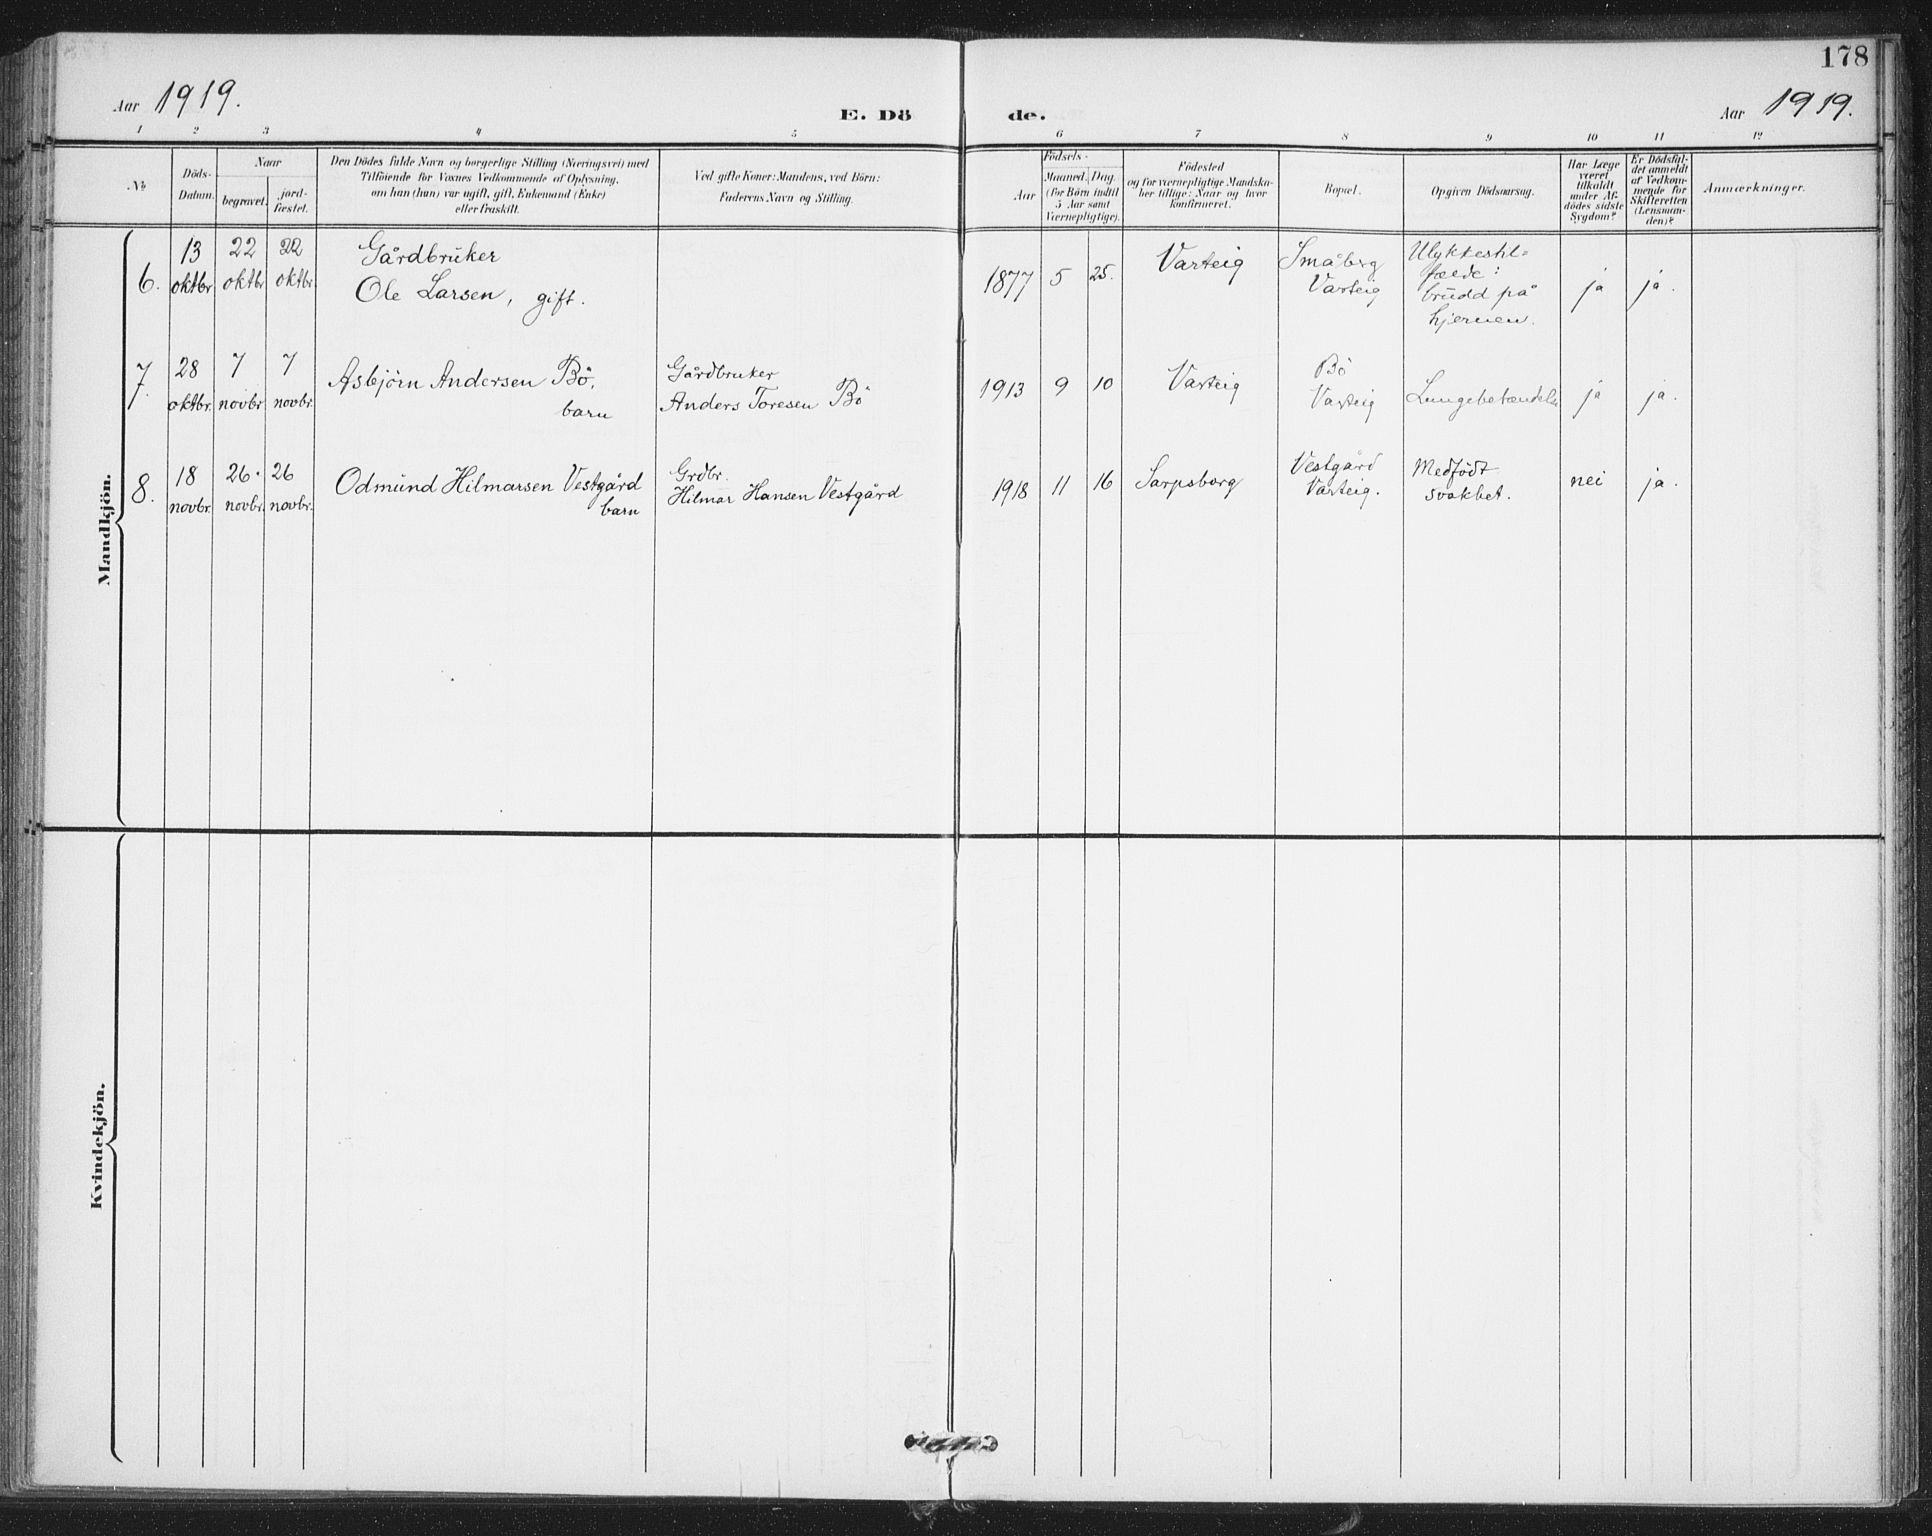 178
Aar 1919.
E. Dö
de.
Aar 1919.
1 2 3 4 5 6 7 8 9 10 11 12
No
Döds-
Datum.
Naar
begravet.
jord-
fæstet.
Den Dödes fulde Navn og borgerlige Stilling (Næringsvei) med
Tilföiende for Voxnes Vedkommende af Oplysning,
om han (hun) var ugift, gift, Enkemand (Enke)
eller fraskilt.
Ved gifte Koner: Mandens, ved Börn:
Faderens Navn og Stilling.
Födsels-
Aar
Maaned. Dag.
(for Börn indtil
5 Aar samt
Værnepligtige).
Födested
og for værnepligtige Mandska-
ber tillige: Naar og hvor
konfirmeret.
Bopæl.
Opgiven Dödsaarsag.
Har Læge
været
tilkaldt
under Af-
dödes sidste
Sygdom?
Er Dödsfal-
det anmeldt
af Vedkom-
mende for
Skifteretten
(Lensman-
den)?
Anmærkninger.
Mandkjön.
6.
13
oktbr
22
oktbr
22
oktbr.
Gårdbruker
Ole Larsen, gift.
1877 5 25.
Varteig
Småberg
Varteig
Ulykkestil-
fælde:
brudd på
hjernen.
ja
ja.
7.
28
oktbr.
7
novbr.
7
novbr.
Asbjörn Andersen Bö,
barn
Gårdbruker
Anders Toresen Bö
1913 9 10
Varteig
Bö
Varteig
Lungebetændelse
ja
ja.
8.
18
novbr.
26.
novbr.
26
novbr.
Odmund Hilmarsen Vestgård
barn
Grdbr.
Hilmar Hansen Vestgård
1918 11 16
Sarpsborg
Vestgård
Varteig.
Medfödt
svakhet.
nei
ja.
Kvindekjön.